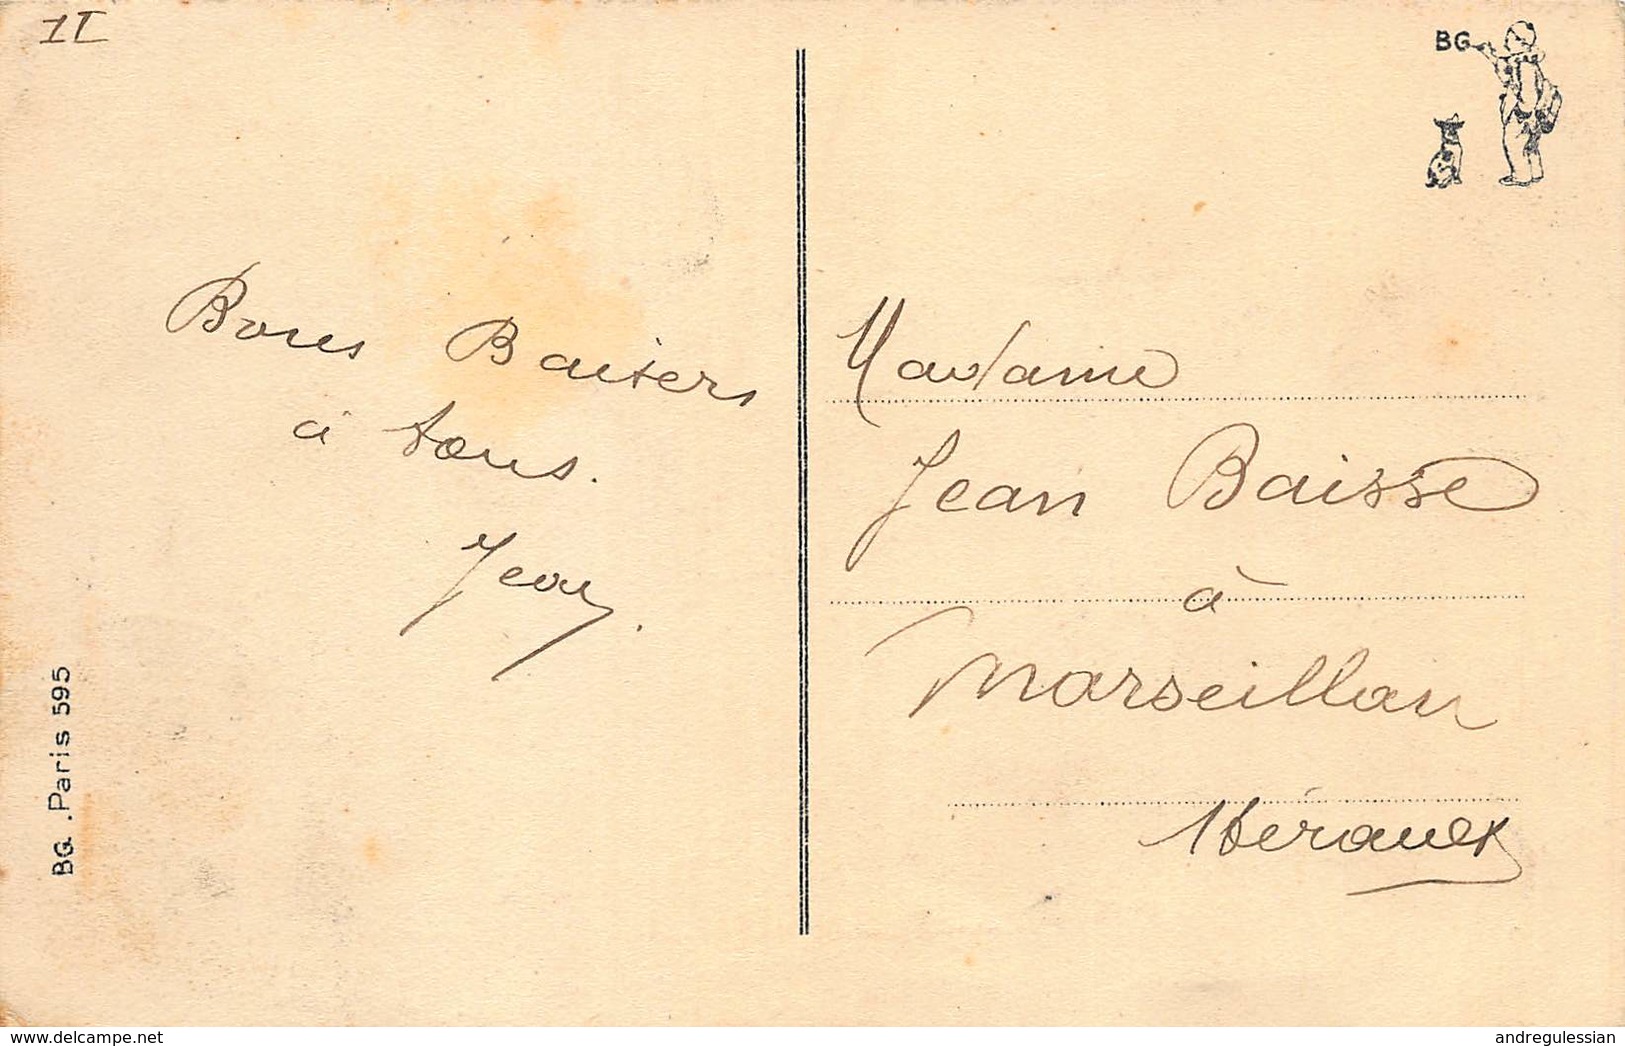 II
BG
Bons Baisers
à tous.
Jean.
Madame
Jean Baisse
à
Marseillan
Hérault
BG. Paris 595
www.delcampe.net
andregulessian